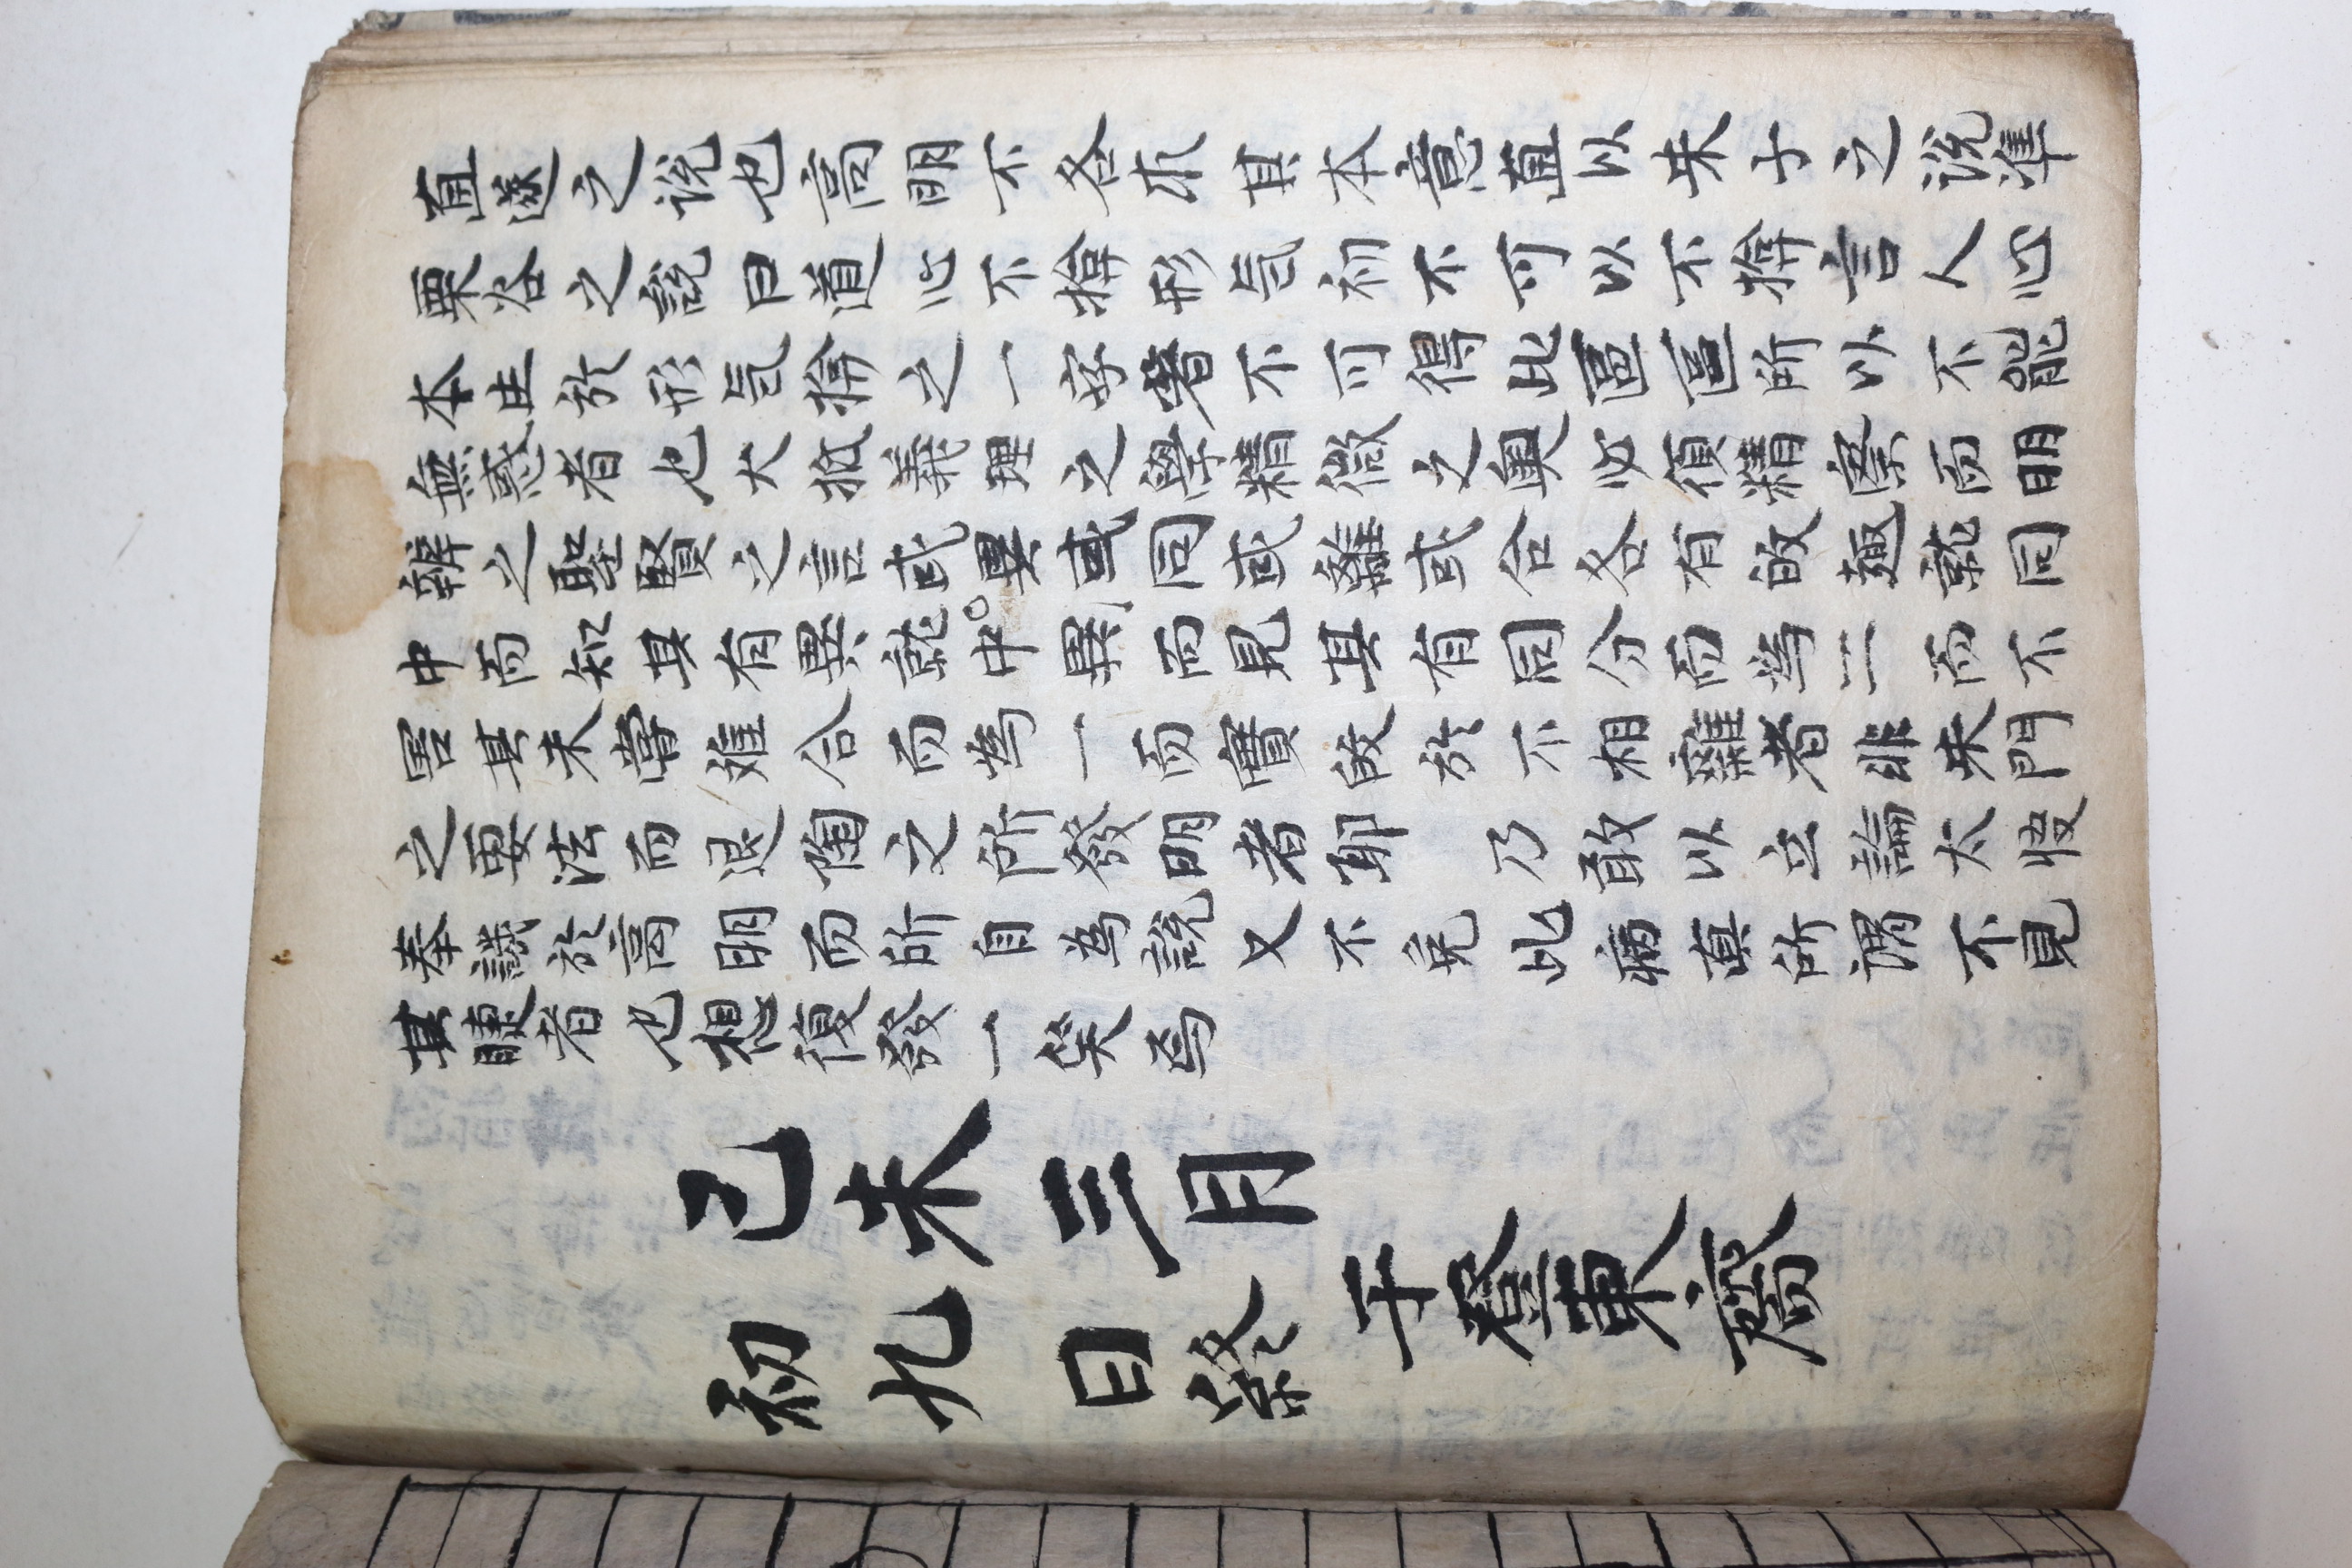 直遂之說也高明不各求其本意直以朱子之說準
栗谷之說曰道心不揜形气初不可以不揜言人心
本生於形气揜之一字著不可得此區區所以不能
無惑者也大抵義理之學精微之奧必須精察而明
辨之聖賢之言或異或同或離或合各有攸趣就同
中而知其有異就中異而見其有同分而為二而不
害其未嘗难合而為一而實皎於不相離者非朱門
之要法而退陶之所發明者耶乃敢以立論太快
奉譏於高明而所自為說又不免此病真所謂不見
其睫者也想復發一笑焉
己未三月
初九日終
于登東齋